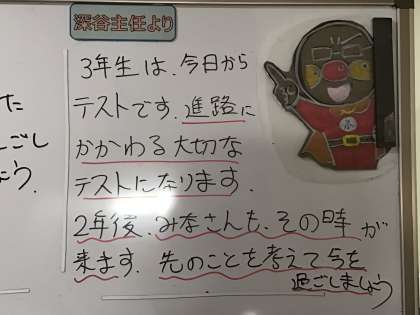 深谷主任より
3年生は、今日から
テストです。進路に
かかわる大切な
テストになります。
2年後、みなさんも、その時が
来ます。先のことを考えて今を
過ごしましょう
た
ごし
う。